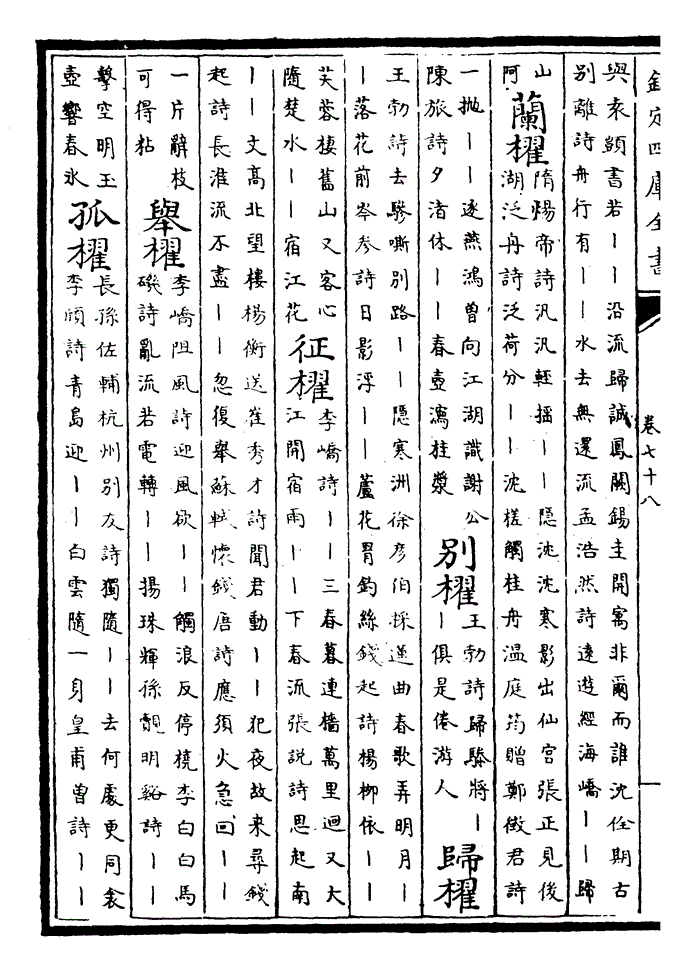 欽定四庫全書
卷七十八
與袁顗書若丨丨沿流歸誠鳳闕錫圭開寓非爾而誰沈佺期古
别離詩舟行有丨丨水去無還流孟浩然詩遠遊經海嶠丨丨歸
山
阿
蘭櫂
隋煬帝詩汎汎輕摇丨丨隱沈沈寒影出仙宫張正見後
湖泛舟詩泛荷分丨丨沈槎觸桂舟温庭筠贈鄭徵君詩
一抛丨丨逐燕鴻曽向江湖識謝公
陳旅詩夕渚休丨丨春壺瀉桂漿
别櫂
王勃詩歸驂將丨
丨俱是倦游人
歸櫂
王勃詩去驂嘶别路丨丨隱寒洲徐彦伯採蓮曲春歌弄明月丨
丨落花前岑参詩日影浮丨丨蘆花罥釣絲錢起詩楊柳依丨丨
芙蓉棲舊山又客心
隨楚水丨丨宿江花
征櫂
李嶠詩丨丨三春暮連檣萬里迴又大
江開宿雨丨丨下春流張説詩思起南
丨丨文髙北望樓楊衡送崔秀才詩聞君動丨丨犯夜故来尋錢
起詩長淮流不盡丨丨忽復舉蘇軾懷錢唐詩應須火急回丨丨
一片辭枝
可得粘
舉櫂
李嶠阻風詩迎風欲丨丨觸浪反停橈李白白馬
磯詩亂流若電轉丨丨揚珠輝孫覿明谿詩丨丨
擊空明玉
壺響春氷
孤櫂
長孫佐輔杭州别友詩獨隨丨丨去何處更同衾
李頎詩青島迎丨丨白雲隨一身皇甫曽詩丨丨